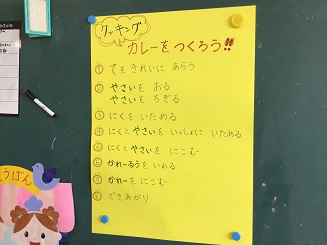 クッキング
カレーをつくろう!!
① てをきれいに あらう
② やさいを おる
やさいを ちぎる
③ にくを いためる
④ にくとやさいを いっしょに いためる
⑤ にくとやさいを にこむ
⑥ かれーるうを いれる
⑦ かれーを にこむ
⑧ できあがり